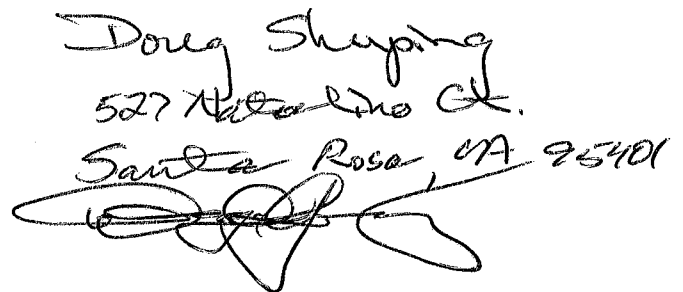 Doug Shuping
527 Natalino Ct.
Santa Rosa, CA 95401